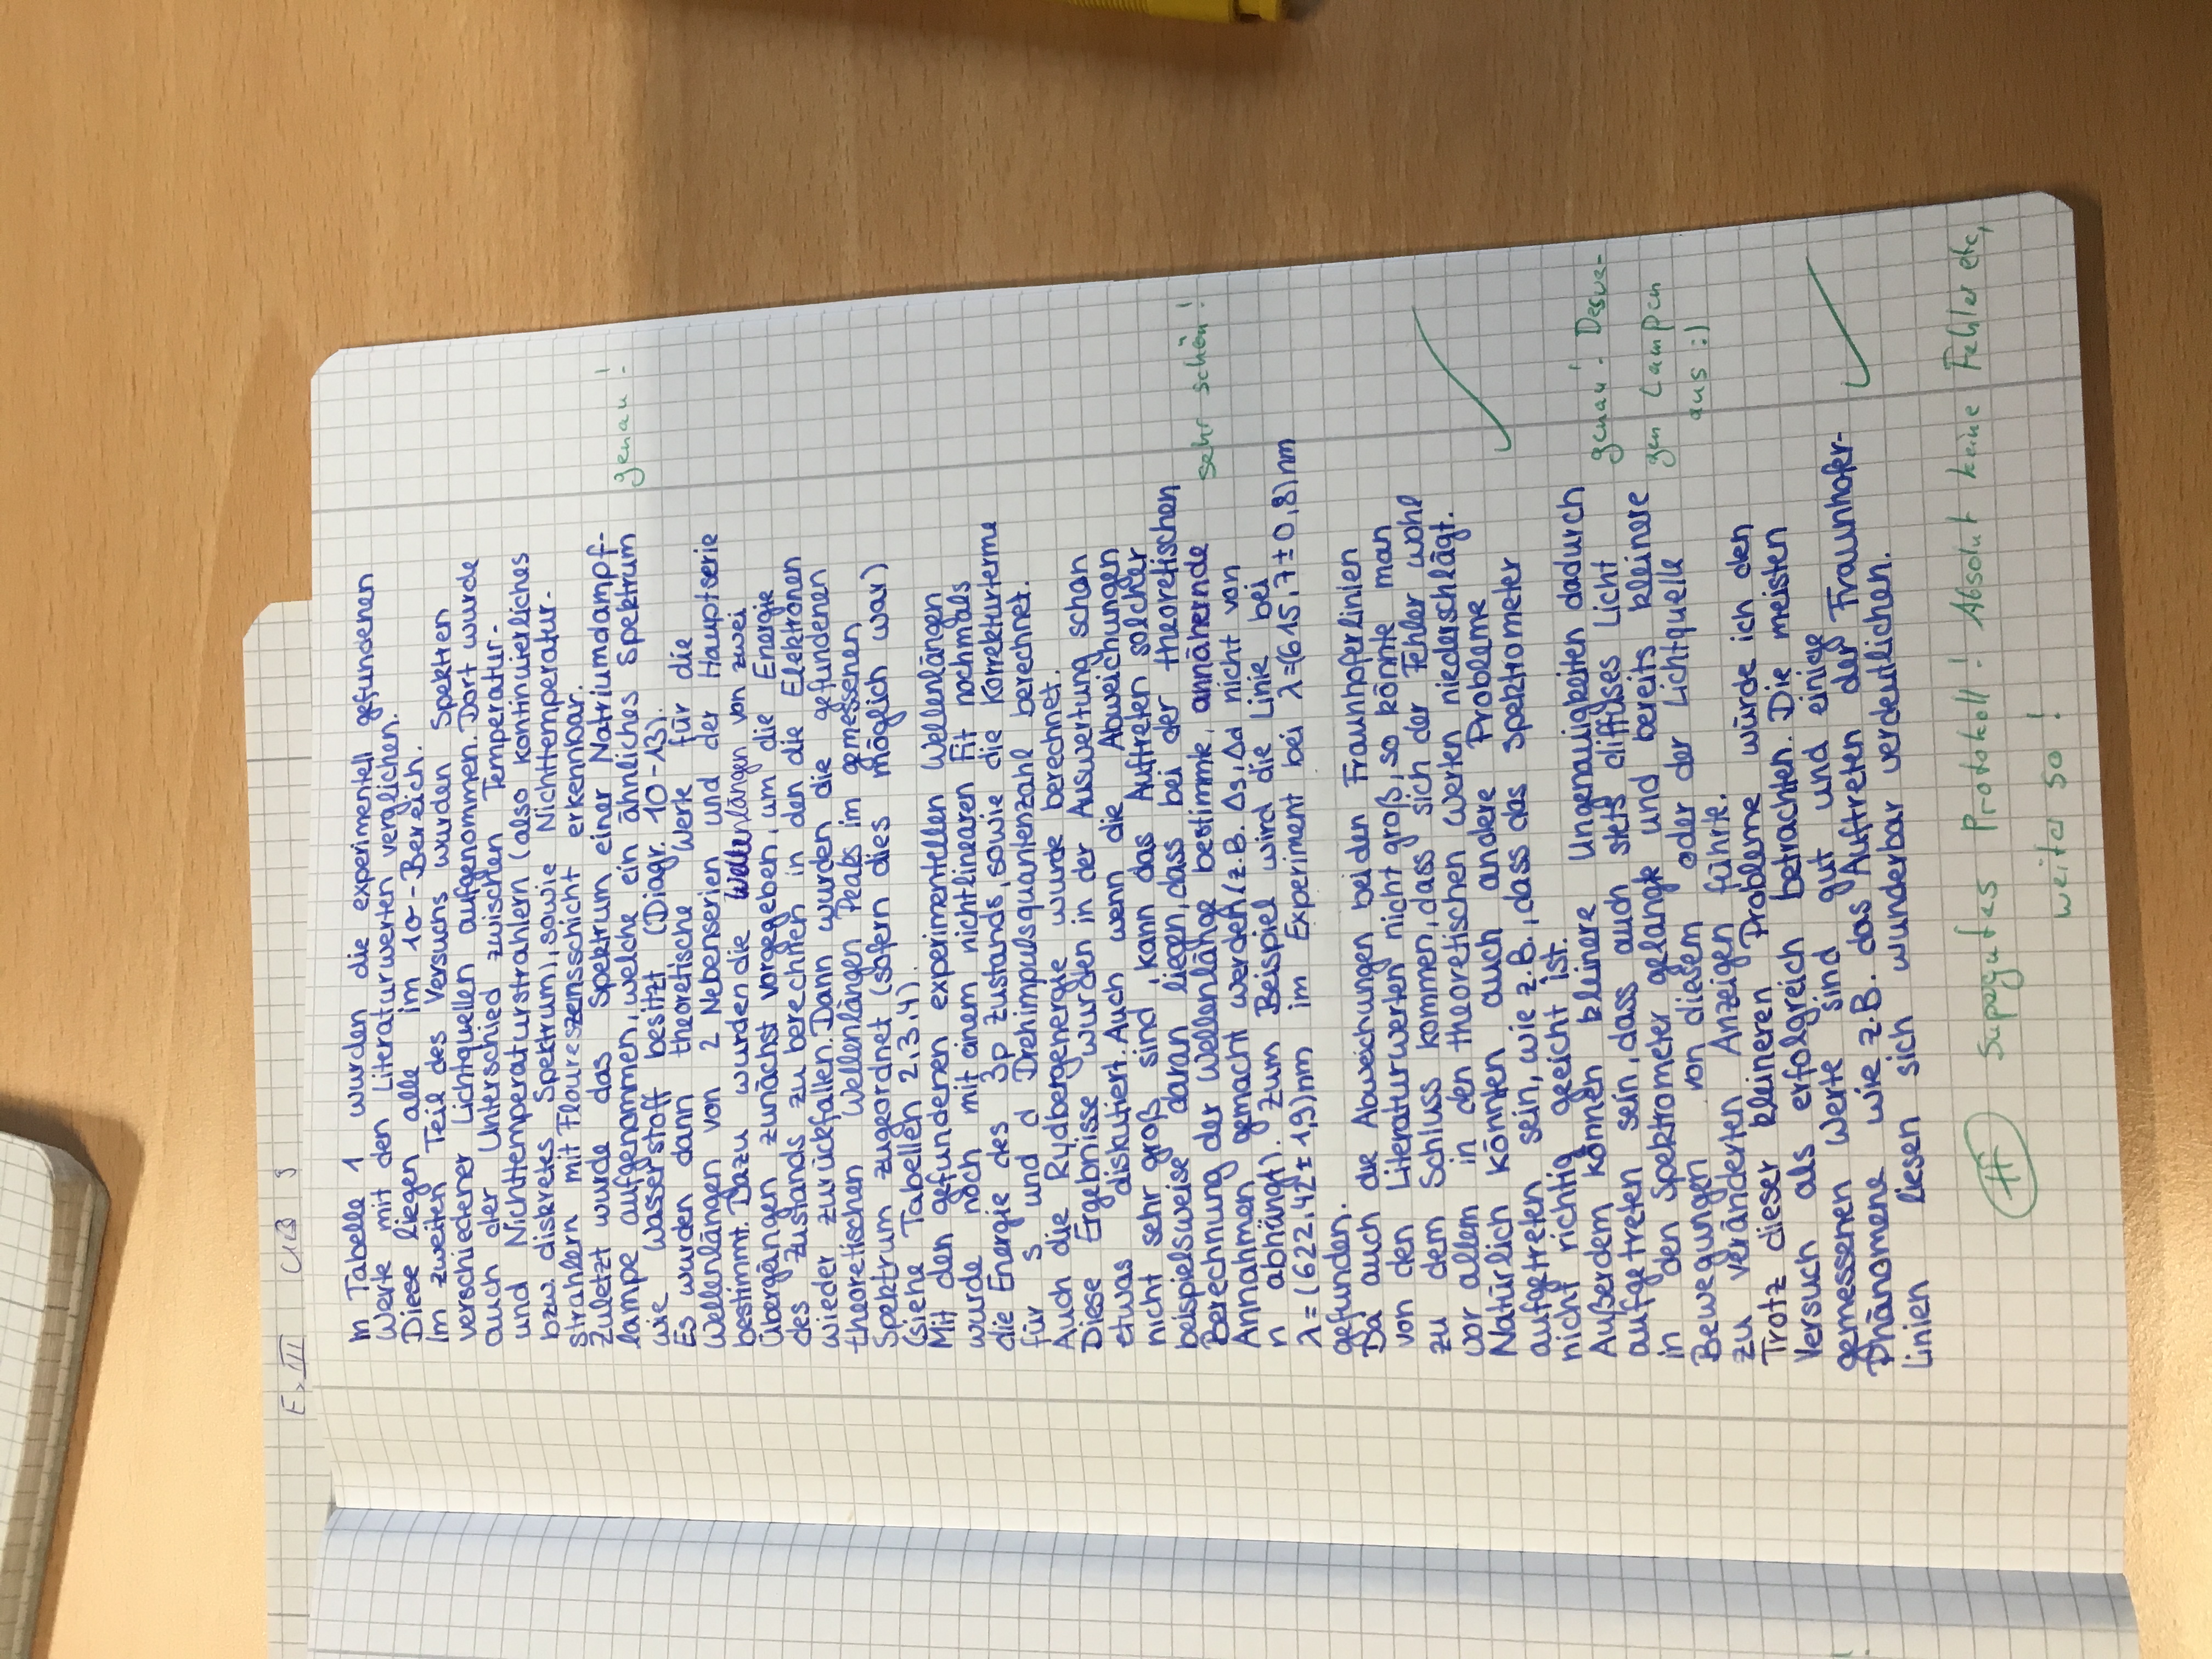 Ex III
In Tabelle 1 wurden die experimentell gefundenen
Werte mit den Literaturwerten verglichen.
Diese liegen alle im 1σ-Bereich.
Im zweiten Teil des Versuchs wurden Spektren
verschiedener Lichtquellen aufgenommen. Dort wurde
auch der Unterschied zwischen Temperatur-
und Nichttemperaturstrahlern (also kontinuierliches
bzw. diskretes Spektrum), sowie Nichttemperatur-
strahlern mit Floureszensschicht erkennbar.
Zuletzt wurde das Spektrum einer Natriumdampf-
lampe aufgenommen, welche ein ähnliches Spektrum genau!
wie Wasserstoff besitzt (Diagr. 10-13).
Es wurden dann theoretische Werte für die
Wellenlängen von 2 Nebenserien und der Hauptserie
bestimmt. Dazu wurden die Wellenlängen von zwei
Übergängen zunächst vorgegeben, um die Energie
des Zustands zu berechnen in den die Elektronen
wieder zurückfallen. Dann wurden die gefundenen
theoretischen Wellenlängen Peaks im gemessenen
Spektrum zugeordnet (sofern dies möglich war)
(siehe Tabellen 2,3,4).
Mit den gefundenen experimentellen Wellenlängen
wurde noch mit einem nichtlinearen Fit nochmals
die Energie des 3p Zustands, sowie die Korrekturterme
für s und d Drehimpulsquantenzahl berechnet.
Auch die Rydbergenergie wurde berechnet.
Diese Ergebnisse wurden in der Auswertung schon
etwas diskutiert. Auch wenn die Abweichungen
nicht sehr groß sind, kann das Auftreten solcher
beispielsweise daran liegen, dass bei der theoretischen
Berechnung der Wellenlänge bestimmte, annähernde sehr schön!
Annahmen gemacht werden (z.B. Δs, Δd nicht von
n abhängt). Zum Beispiel wird die Linie bei
λ=(622,42 ± 1,9)nm im Experiment bei λ=(615,7±0,8)nm
gefunden.
Da auch die Abweichungen bei den Fraunhoferlinien
von den Literaturwerten nicht groß, so könnte man
zu dem Schluss kommen, dass sich der Fehler wohl
vor allem in den theoretischen Werten niederschlägt.
Natürlich könnten auch andere Probleme
aufgetreten sein, wie z.B., dass das Spektrometer
nicht richtig geeicht ist.
Außerdem können kleinere Ungenauigkeiten dadurch
aufgetreten sein, dass auch stets diffuses Licht genau! Deswe-
in den Spektrometer gelangte und bereits kleinere gen Lampen
Bewegungen von diesem oder der Lichtquelle aus :)
zu veränderten Anzeigen führte.
Trotz dieser kleineren Probleme würde ich den
Versuch als erfolgreich betrachten. Die meisten
gemessenen Werte sind gut und einige
Phänomene wie z.B. das Auftreten der Fraunhofer-
linien liesen sich wunderbar verdeutlichen.
Supergutes Protokoll! Absolut keine Fehler etc,
weiter so!